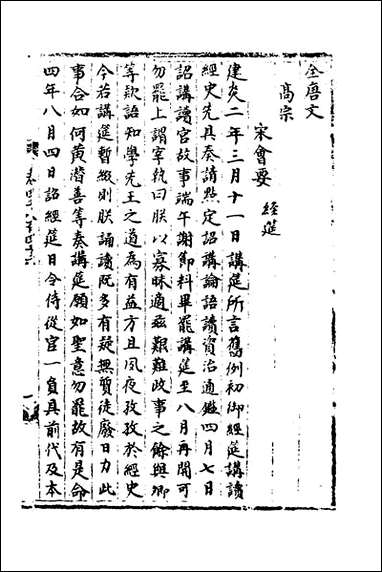 全唐文
宋會要 經筵
高宗
建炎二年三月十一日講筵所言舊例初御經筵講讀
經史先具奏請點定詔講論語讀資治通鑑四月七日
詔講讀官故事端午謝節料畢罷講筵至八月再開可
勿罷上謂宰執曰朕以寡昧適茲艱難政事之餘與卿
等款語知學先王之道為有益方且夙夜孜孜於經史
今若講筵暫綴則朕誦讀既多有疑無質徒廢日力此
事合如何黃潛善等奏講筵願如聖意勿罷故有是命
四年八月四日詔經筵日令侍從官一員具前代及本